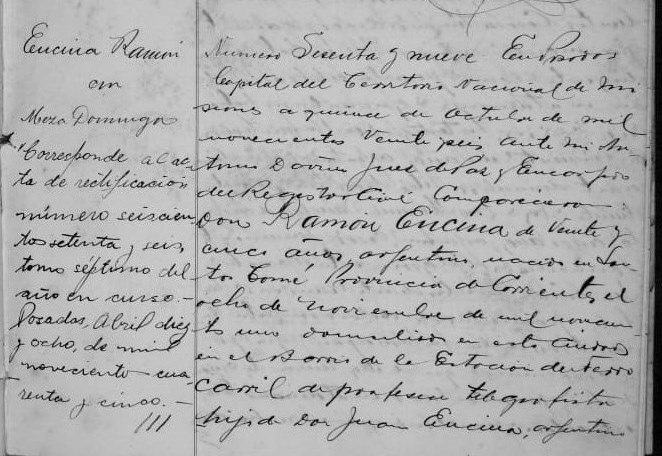 Encina Ramón
con
Meza Dominga
Corresponde al ac
ta de rectificación
número seiscien
tos setenta y seis
tomo séptimo del
año en curso.-
Posadas, Abril diez
y ocho, de mil
noveciento cua
renta y cinco.-
Número Sesenta y nueve En Posadas
Capital del Territorio Nacional de Mi
siones a quince de Octubre de mil
novecientos Veinte seis ante mi An
tonio Juez de Paz y Encargado
del Registro Civil Comparecieron:
Don Ramón Encina de Veinte y
cinco años, argentino, nacido en San
to Tomé Provincia de Corrientes el
ocho de Noviembre de mil novecien
tos uno domiciliado en esta Ciudad
en el Barrio de la Estación del Ferro
carril de profesion telegrafista
hijo de Don Juan Encina, argentino